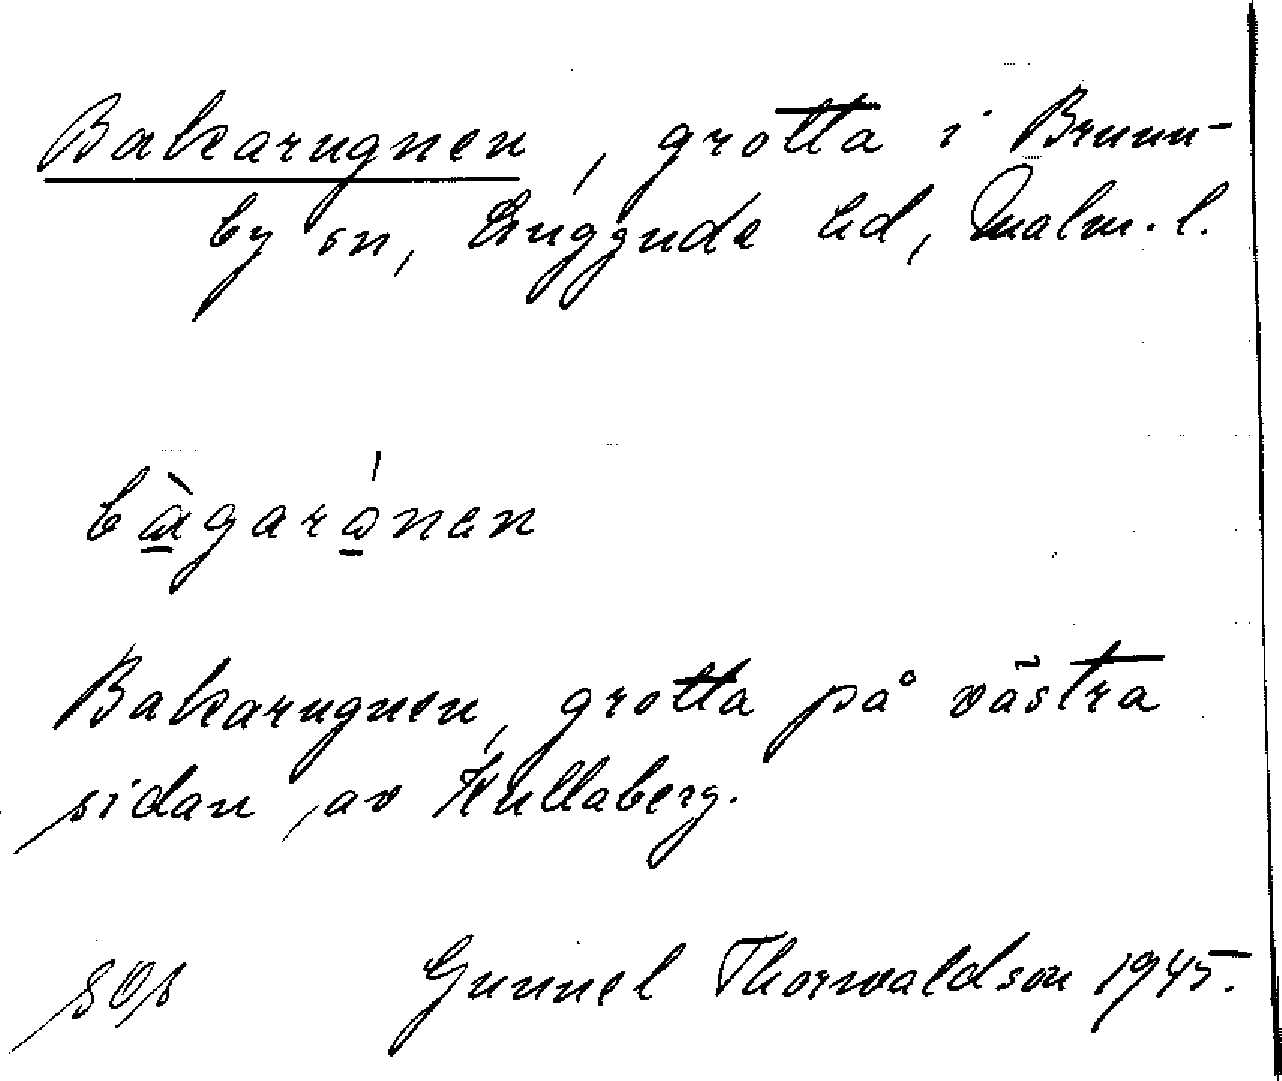 Bakarugnen, grotta i Brunn-
by sn, Luggude hd, Malm. l.
bàgarónen
Bakarugnen, grotta på västra
sidan av Kullaberg.
Gunnel Thorwaldson 1945.